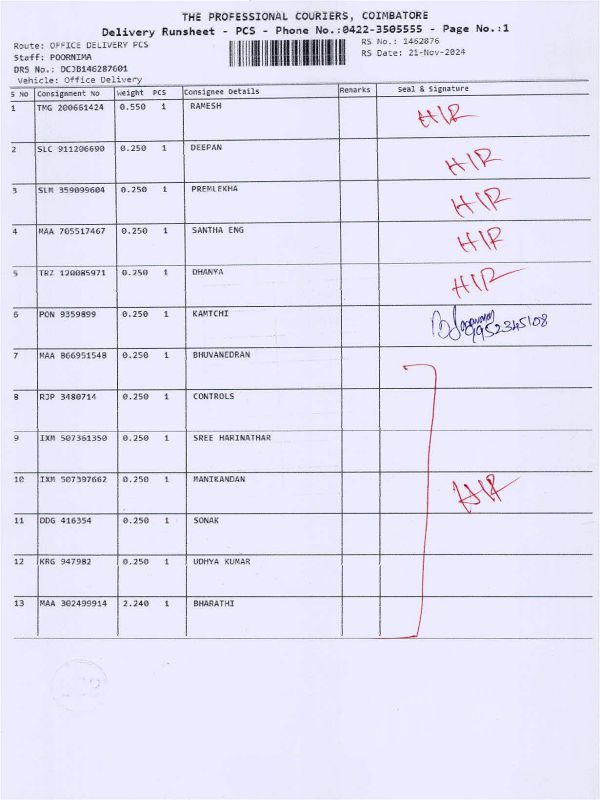 THE PROFESSIONAL COURIERS, COIMBATORE
Delivery Runsheet - PCS - Phone No.:0422-3505555 - Page No.:1
Route: OFFICE DELIVERY PCS
RS No.: 1462876
Staff: POORNIMA
RS Date: 21-Nov-2024
DRS No.: DCJB146287601
Vehicle: Office Delivery
S No Consignment No Weight PCS Consignee Details Remarks Seal & Signature
1 TMG 200661424 0.550 1 RAMESH HIR
2 SLC 911206690 0.250 1 DEEPAN HIR
3 SLM 359099604 0.250 1 PREMLEKHA HIR
4 MAA 705517467 0.250 1 SANTHA ENG HIR
5 TRZ 120085971 0.250 1 DHANYA HIR
6 PON 9359899 0.250 1 KAMTCHI 9952345108
7 MAA 866951548 0.250 1 BHUVANEDRAN
8 RJP 3480714 0.250 1 CONTROLS
9 IXM 507361350 0.250 1 SREE HARINATHAR
10 IXM 507397662 0.250 1 MANIKANDAN HIR
11 DDG 416354 0.250 1 SONAK
12 KRG 947982 0.250 1 UDHYA KUMAR
13 MAA 302499914 2.240 1 BHARATHI